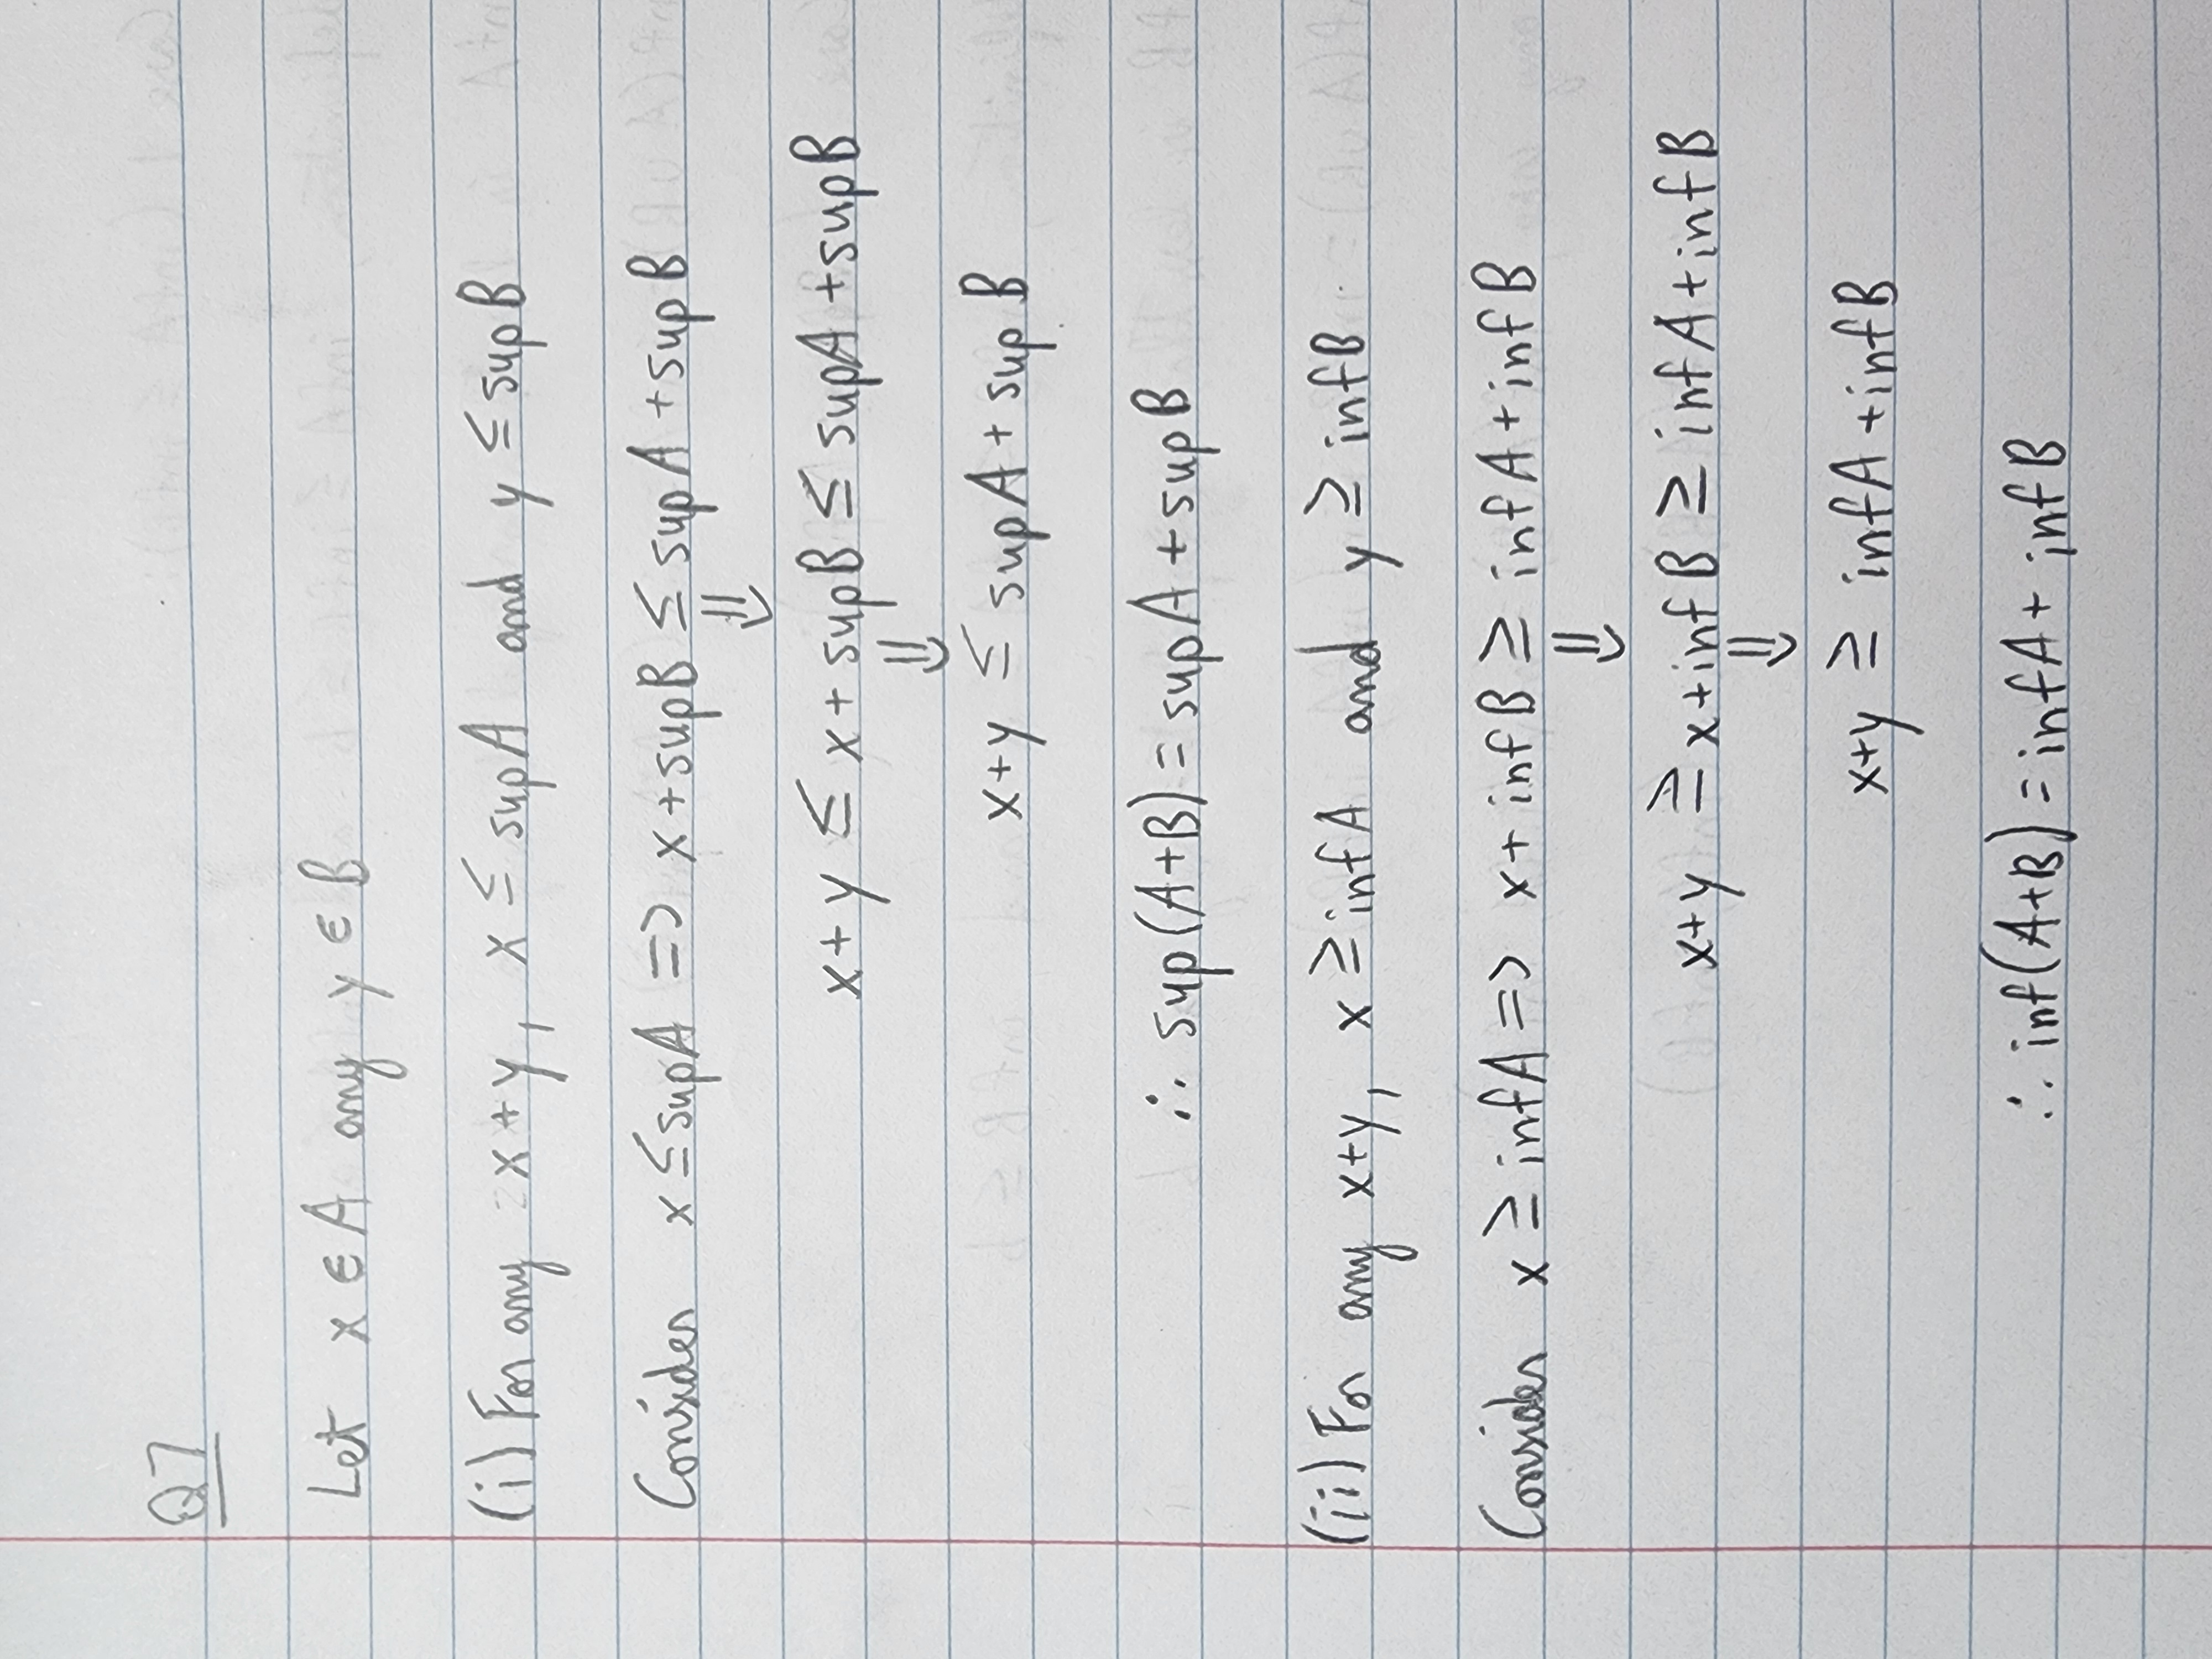 Q7
Let x ∈ A any y ∈ B
(i) For any x + y, x ≤ sup A and y ≤ sup B
Consider x ≤ sup A => x + sup B ≤ sup A + sup B
⇓
x + y ≤ x + sup B ≤ sup A + sup B
⇓
x + y ≤ sup A + sup B
∴ sup (A+B) = sup A + sup B
(ii) For any x+y, x ≥ inf A and y ≥ inf B
Consider x ≥ inf A => x + inf B ≥ inf A + inf B
⇓
x+y ≥ x + inf B ≥ inf A + inf B
⇓
x+y ≥ inf A + inf B
∴ inf (A+B) = inf A + inf B